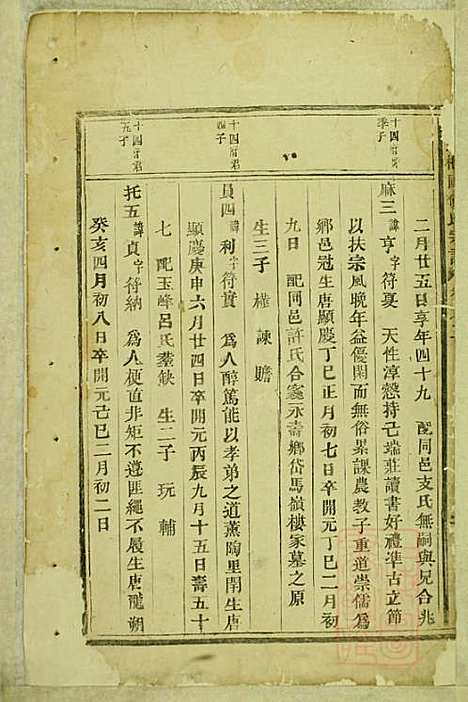 二月廿五日享年四十九　配同邑支氏無嗣與兄合兆
季子
十四府君
麻三諱亨字符夏　天性淳慤持己端莊讀書好禮準古立節
以扶宗風晚年益優閑而無俗累課農教子重道崇儒爲
鄉邑冠生唐顯慶丁巳正月初七卒開元丁巳二月初
九日　配同邑許氏合窆永壽鄉岱馬嶺樓家墓之原
生三子　諫　贍
十四府君
子
員四諱利字符貴　爲人醇篤能以孝弟之道薰陶里閈生唐
顯慶庚申六月廿四日卒開元丙辰九月十五日壽五十
七　配玉峰呂氏葬缺　生二子　玩　輔
十四府君
五子
托五諱貞字符納　爲人梗直非矩不遵匪繩不履生唐龍朔
癸亥四月初八日卒開元己巳二月初二日